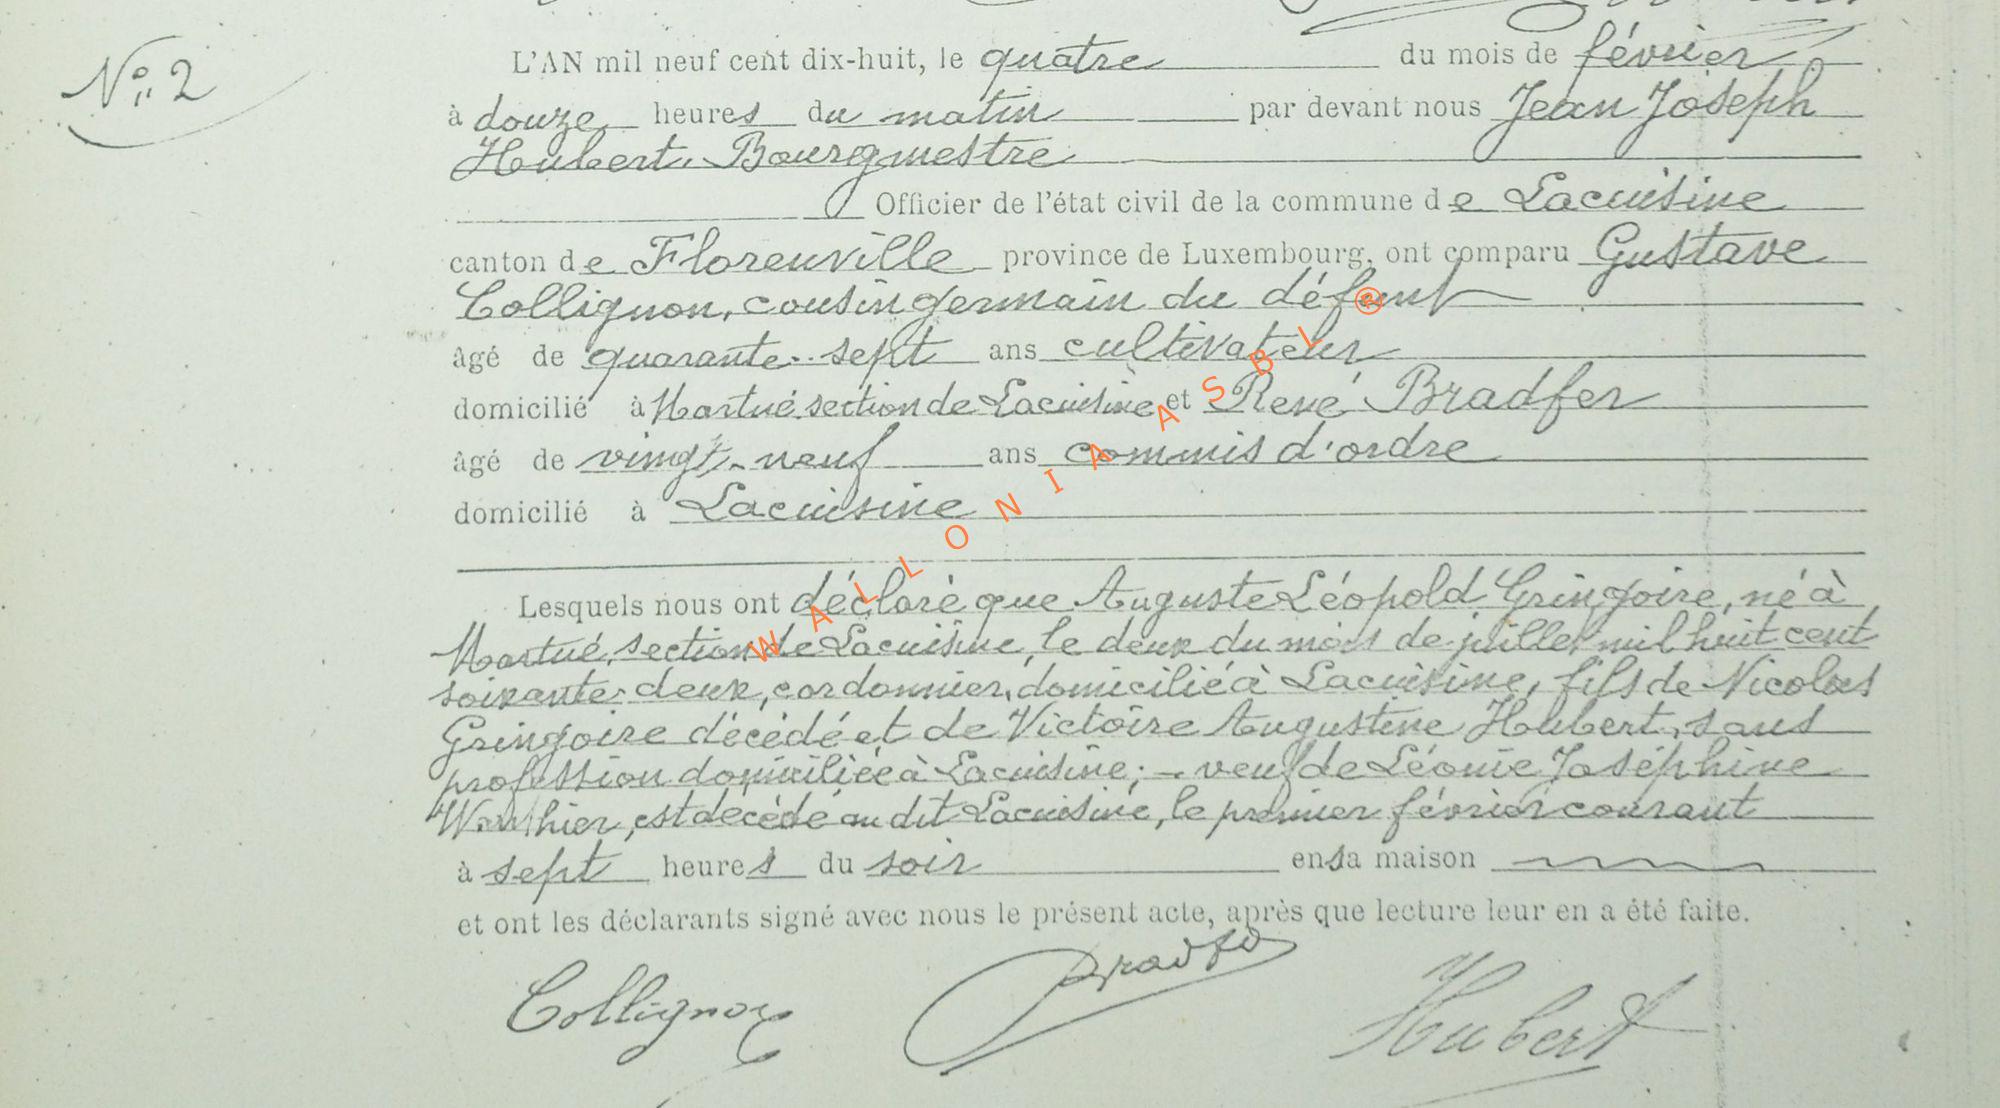 N° 2
L'AN mil neuf cent dix-huit, le quatre du mois de février
à douze heures du matin par devant nous Jean Joseph
Hubert, Bourgmestre
Officier de l'état civil de la commune de Lacuisine
canton de Florenville province de Luxembourg, ont comparu Gustave
Collignon, cousin germain du défunt
âgé de quarante-sept ans cultivateur
domicilié à Martué section de Lacuisine et René Bradfer
âgé de vingt-neuf ans commis d'ordre
domicilié à Lacuisine
Lesquels nous ont déclaré que Auguste Léopold Gringoire, né à
Martué, section de Lacuisine, le deux du mois de juillet mil huit cent
soixante-deux, cordonnier, domicilié à Lacuisine, fils de Nicolas
Gringoire décédé et de Victoire Augustine Hubert, sans
profession domiciliée à Lacuisine; - veuf de Léonie Joséphine
est décédé au dit Lacuisine, le premier février courant
à sept heures du soir en sa maison
et ont les déclarants signé avec nous le présent acte, après que lecture leur en a été faite.
Collignon Bradfer Hubert
WALLONIA ASBL ®